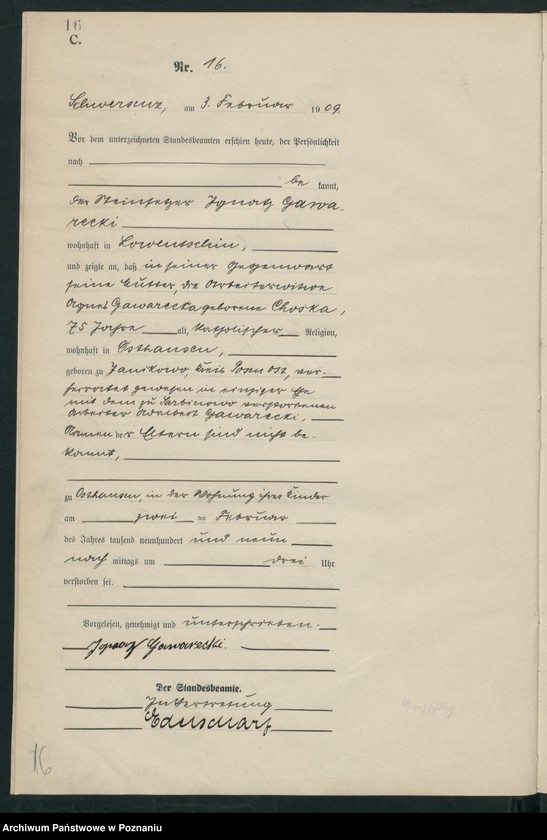 16
C.
Nr. 16.
Schwersenz, am 3. Februar 1909.
Vor dem unterzeichneten Standesbeamten erschien heute, der Persönlichkeit
nach
be kannt,
der Steinsetzer Ignatz Gawa-
recki
wohnhaft in Lowentschin,
und zeigte an, daß in seiner Gegenwart
seine Mutter, die Arbeiterwitwe
Agnes Gawarecka geborene Choska,
75 Jahre alt, katholischer Religion,
wohnhaft in Osthausen,
geboren zu Janikowo, Kreis Posen Ost, ver-
heiratet gewesen in einziger Ehe
mit dem zu Sarbinowo verstorbenen
Arbeiter Adalbert Gawarecki,
Namen der Eltern sind nicht be-
kannt,
zu Osthausen, in der Wohnung ihrer Kinder
am zwei ten Februar
des Jahres tausend neunhundert und neun
nach mittags um drei Uhr
verstorben sei.
Vorgelesen, genehmigt und unterschrieben.
Ignatz Gawarecki.
Der Standesbeamte.
In Vertretung
16
Archiwum Państwowe w Poznaniu